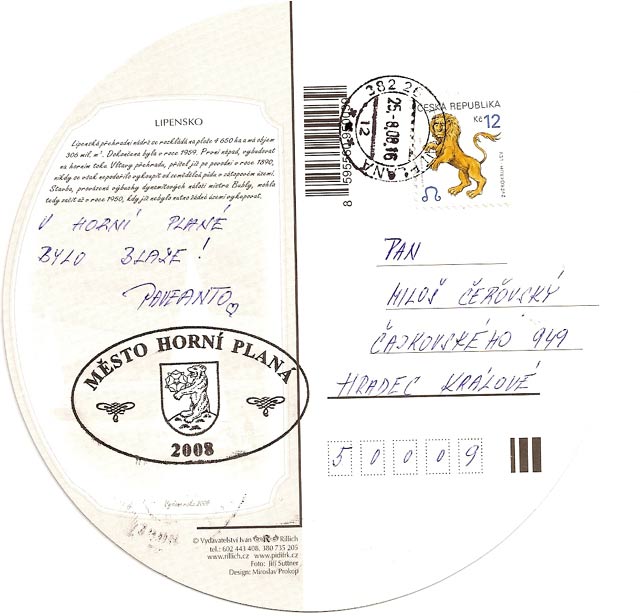 LIPENSKO
Lipenská přehradní nádrž se rozkládá na ploše 4 650 ha a má objem
306 mil. m³. Dokončena byla v roce 1959. První nápad, vybudovat
na horním toku Vltavy přehradu, přišel již po povodni v roce 1890,
nikdy se však nepodařilo vykoupit od zemědělců půdu v zátopovém území.
Stavba, provázená výbuchy dynamitových náloží mistra Bubly, mohla
tedy začít až v roce 1950, kdy již nebylo nutno žádné území vykupovat.
V HORNÍ PLANÉ
BYLO BLAZE!
PAVFANTO
MĚSTO HORNÍ PLANÁ
2008
© Vydavatelství Ivan R Rillich
tel.: 602 443 408, 380 735 205
www.rillich.cz www.piditrk.cz
Foto: Jiří Suttner
Design: Miroslav Prokop
382 26
25-8.08.16
12
PLANÁ
ČESKÁ REPUBLIKA
Kč 12
ZVĚROKRUH LEV
PAN
MILOŠ ČEŘOVSKÝ
ČAJKOVSKÉHO 949
HRADEC KRÁLOVÉ
50009